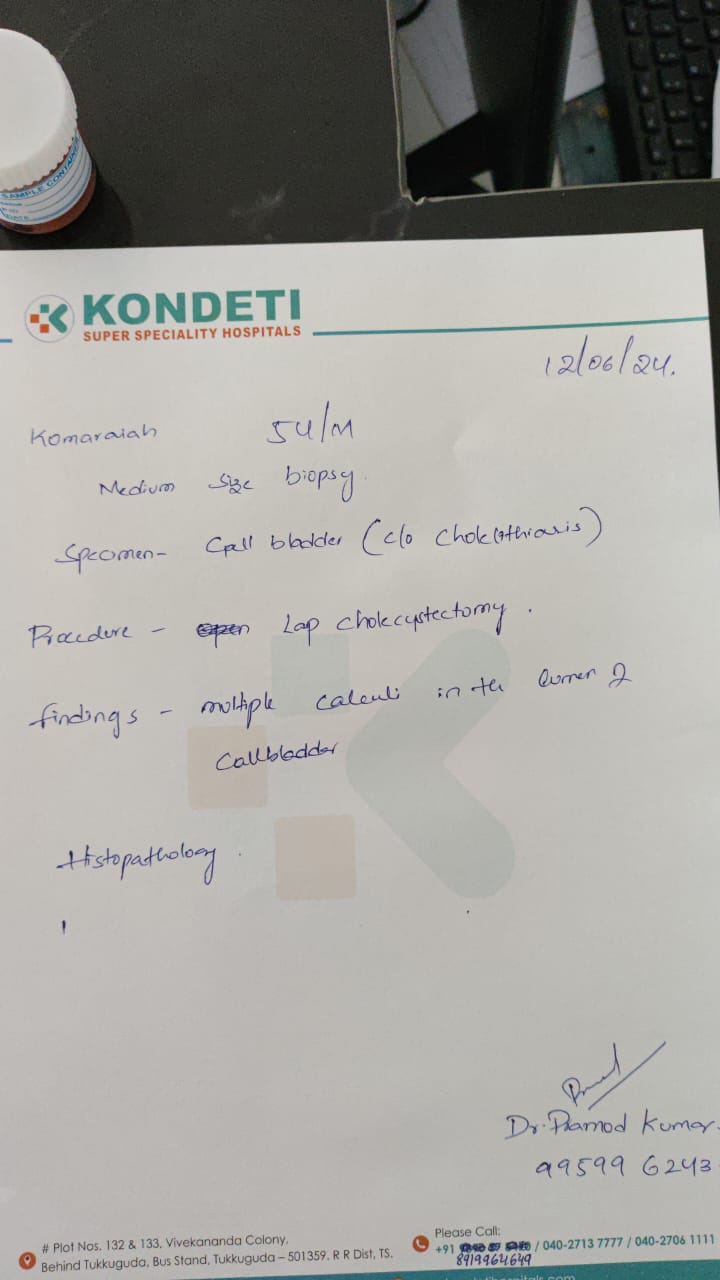 SAMPLE CONTAINER
DATE
KONDETI
SUPER SPECIALITY HOSPITALS
12/06/24.
Komaraiah 54/M
Medium size biopsy.
Specimen- Gall bladder (c/o Cholelithiasis)
Procedure - open Lap cholecystectomy.
findings - multiple calculi in the lumen
Gallbladder
Histopathology.
Dr. Pramod Kumar
99599 6243
# Plot Nos. 132 & 133, Vivekananda Colony,
Behind Tukkuguda, Bus Stand, Tukkuguda – 501359. R R Dist, TS.
Please Call:
+91 / 040-2713 7777 / 040-2706 1111
8919964649